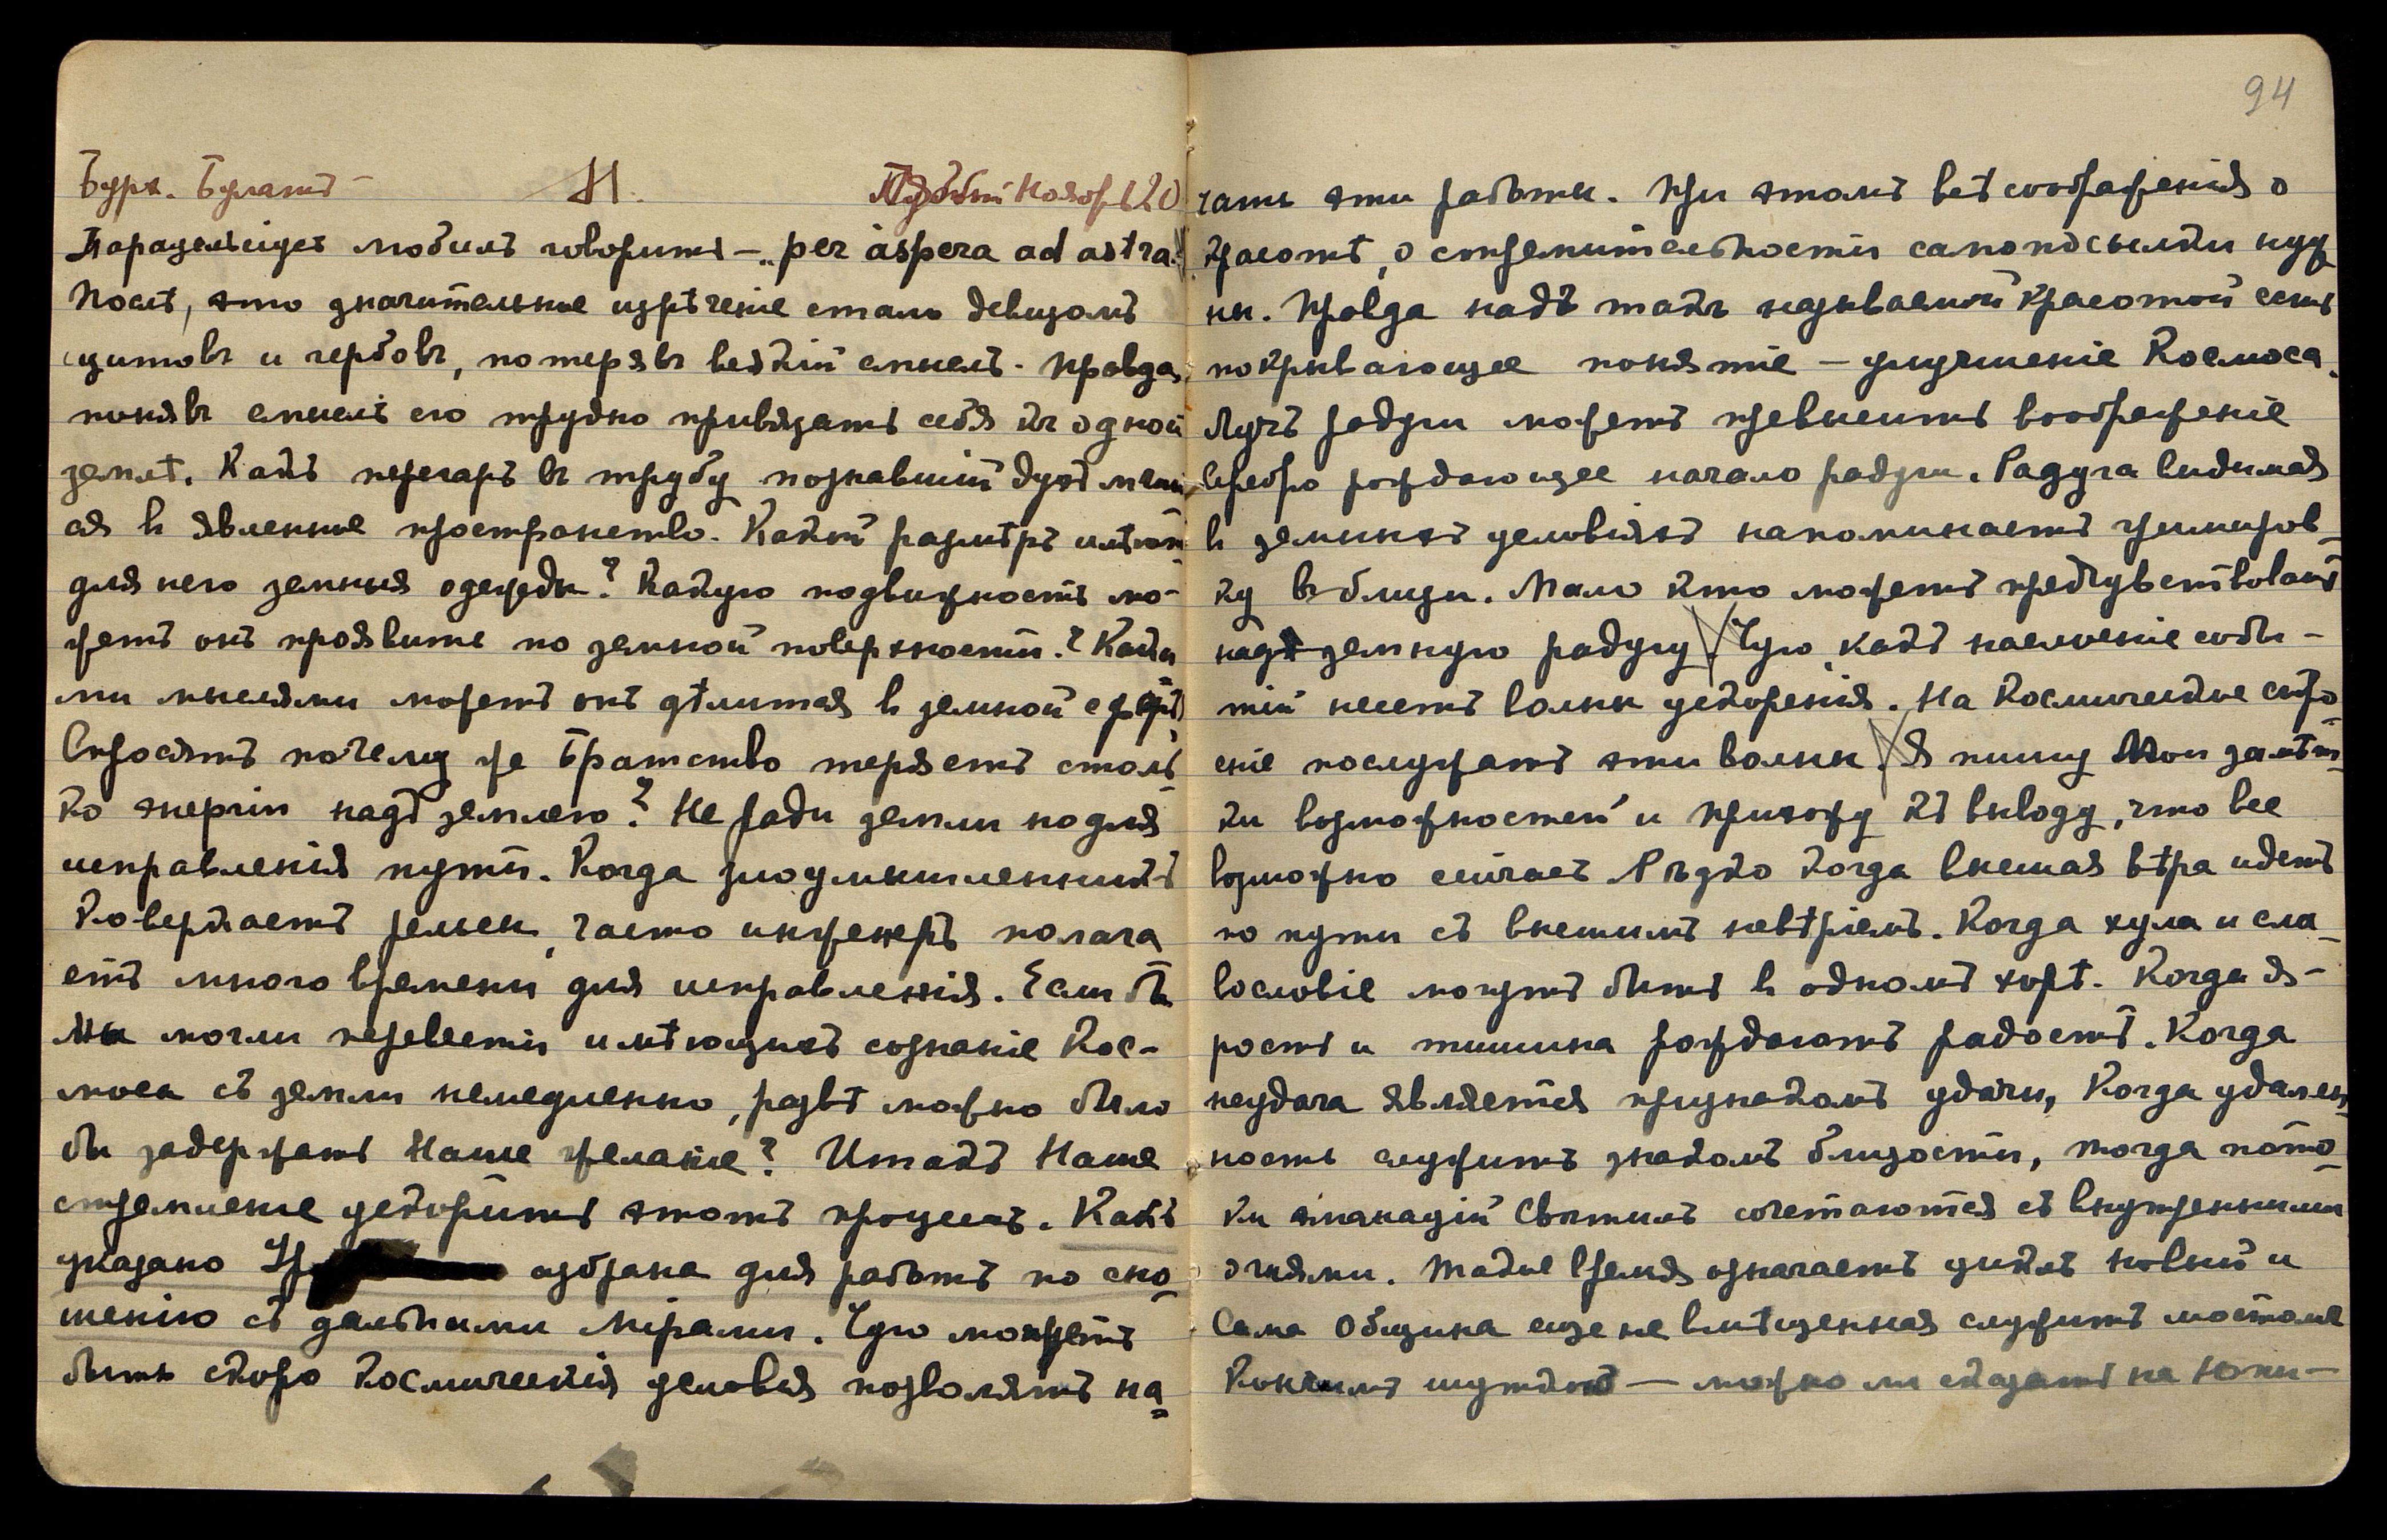 Бурх. Булатъ –
Парацельсiусъ любилъ говорить – „per aspera ad astra“.
Послѣ, это значительное изрѣченiе стало девизомъ
щитовъ и гербовъ, потерявъ всякiй смыслъ. Правда,
понявъ смыслъ его трудно привязать себя къ одной
землѣ. Какъ перегаръ въ трубу познавшiй духъ мчит
ся в явленные пространство. Какой размѣръ имѣютъ
для него земныя одежды? Какую подвижность мо-
жетъ онъ проявить по земной поверхности? Каки
ми мыслями можетъ онъ дѣлиться в земной сферѣ
Спросятъ почему же Братство теряетъ столь
ко энергiи надъ землею? Не ради земли но для
исправленiя пути. Когда злоумышленникъ
коверкаетъ рельсы, часто инженеръ полага
етъ много времени для исправленiя. Если бы
Мы могли перевести имѣющихъ сознанiе Кос-
моса съ земли немедленно, развѣ можно было
бы задержать Наше желанiе? Итакъ Наше
стремленье ускорить этотъ процессъ. Какъ
указано избрана для работъ по сно
шенiю съ дальними Мiрами. Чую можетъ
быть скоро Космическiя условiя позволятъ на
94
чать эти работы. При этомъ всѣ соображенiя о
красотѣ, о стремительности самопосылки нуж
ны. Правда надъ такъ называемой красотой есть
покрывающее понятiе – улучшенiе Космоса.
Лучъ радуги можетъ превысить воображенiе
Серебро рождающее начало радуги. Радуга видимая
в земныхъ условiяхъ напоминаетъ гримиров
ку въ близи. Мало кто можетъ предчувствовать
надъ земную радугу. Чую, какъ наслоенiе собы-
тiй несетъ волны ускоренiя. На Космическое стро
енiе послужатъ эти волны. Я пишу Мои замѣт
ки возможностей и прихожу къ выводу, что все
возможно сейчасъ Рѣдко когда высшая вѣра идетъ
по пути съ высшимъ невѣрiемъ. Когда хула и сла-
вословiе могутъ быть в одномъ хорѣ. Когда я-
рость и тишина рождаютъ радость. Когда
неудача является признакомъ удачи, Когда удален
ность служитъ знакомъ близости, тогда пото
ки эманацiй Свѣтилъ сочетаются съ внутренними
огнями. Такое время означаетъ циклъ новый и
Сама Община еще не вмѣщенная служитъ мостомъ
Кончимъ шуткой – можно ли сказать на Юпи-